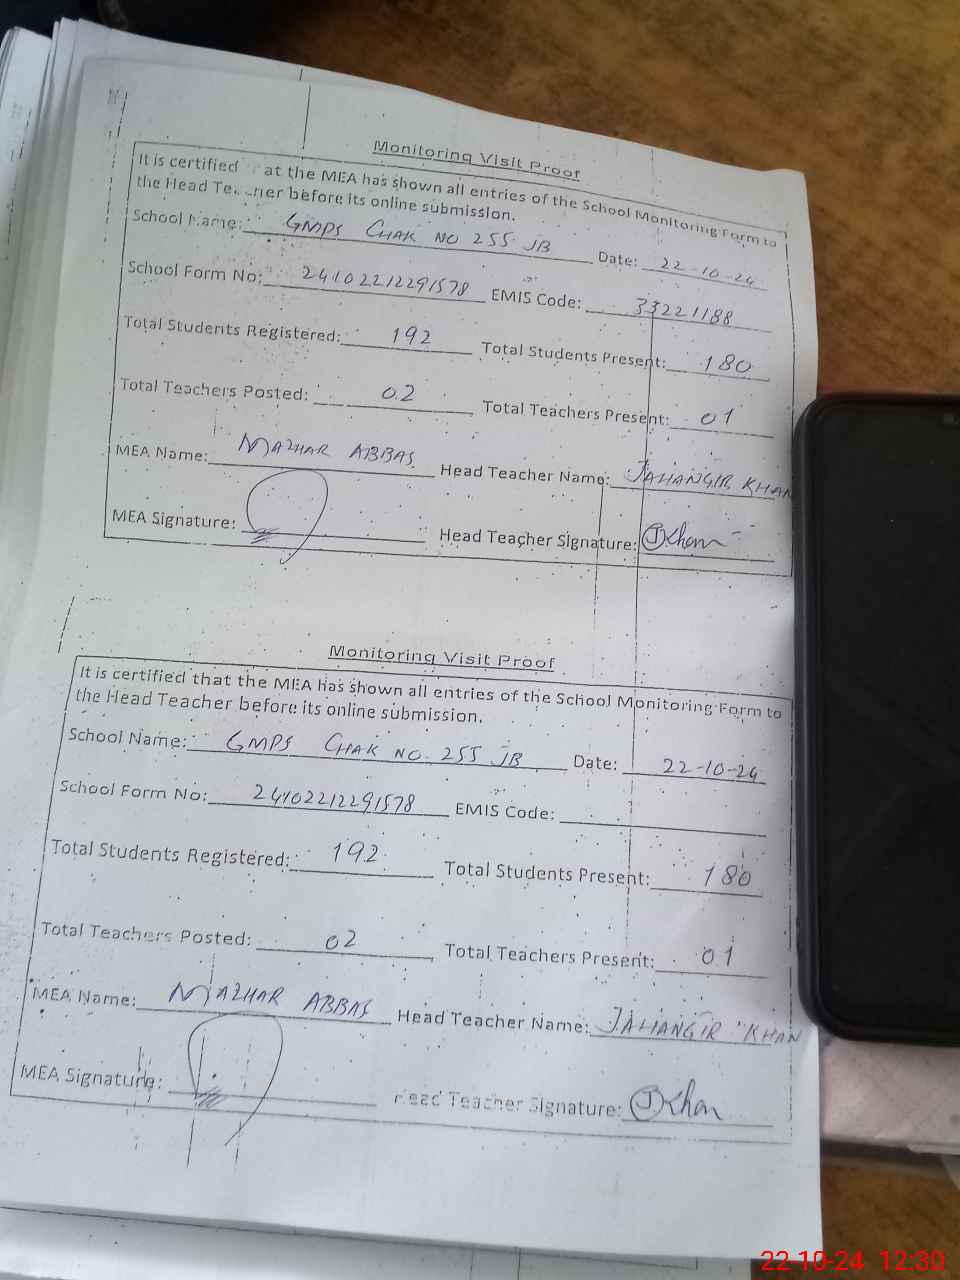 Monitoring Visit Proof
It is certified at the MEA has shown all entries of the School Monitoring Form to
the Head Te...her before its online submission.
School Name: GMPS CHAK NO 255 JB Date: 22-10-24
School Form No: 24102212291578 EMIS Code: 33221188
Total Students Registered: 192 Total Students Present: 180
Total Teachers Posted: 02 Total Teachers Present: 01
MEA Name: MAZHAR ABBAS Head Teacher Name: JAHANGIR KHAN
MEA Signature: Head Teacher Signature: JKhan
Monitoring Visit Proof
It is certified that the MEA has shown all entries of the School Monitoring Form to
the Head Teacher before its online submission.
School Name: GMPS CHAK NO. 255 JB Date: 22-10-24
School Form No: 24102212291578 EMIS Code:
Total Students Registered: 192 Total Students Present: 180
Total Teachers Posted: 02 Total Teachers Present: 01
MEA Name: MAZHAR ABBAS Head Teacher Name: JAHANGIR KHAN
MEA Signature: Head Teacher Signature: JKhan
22-10-24 12:30